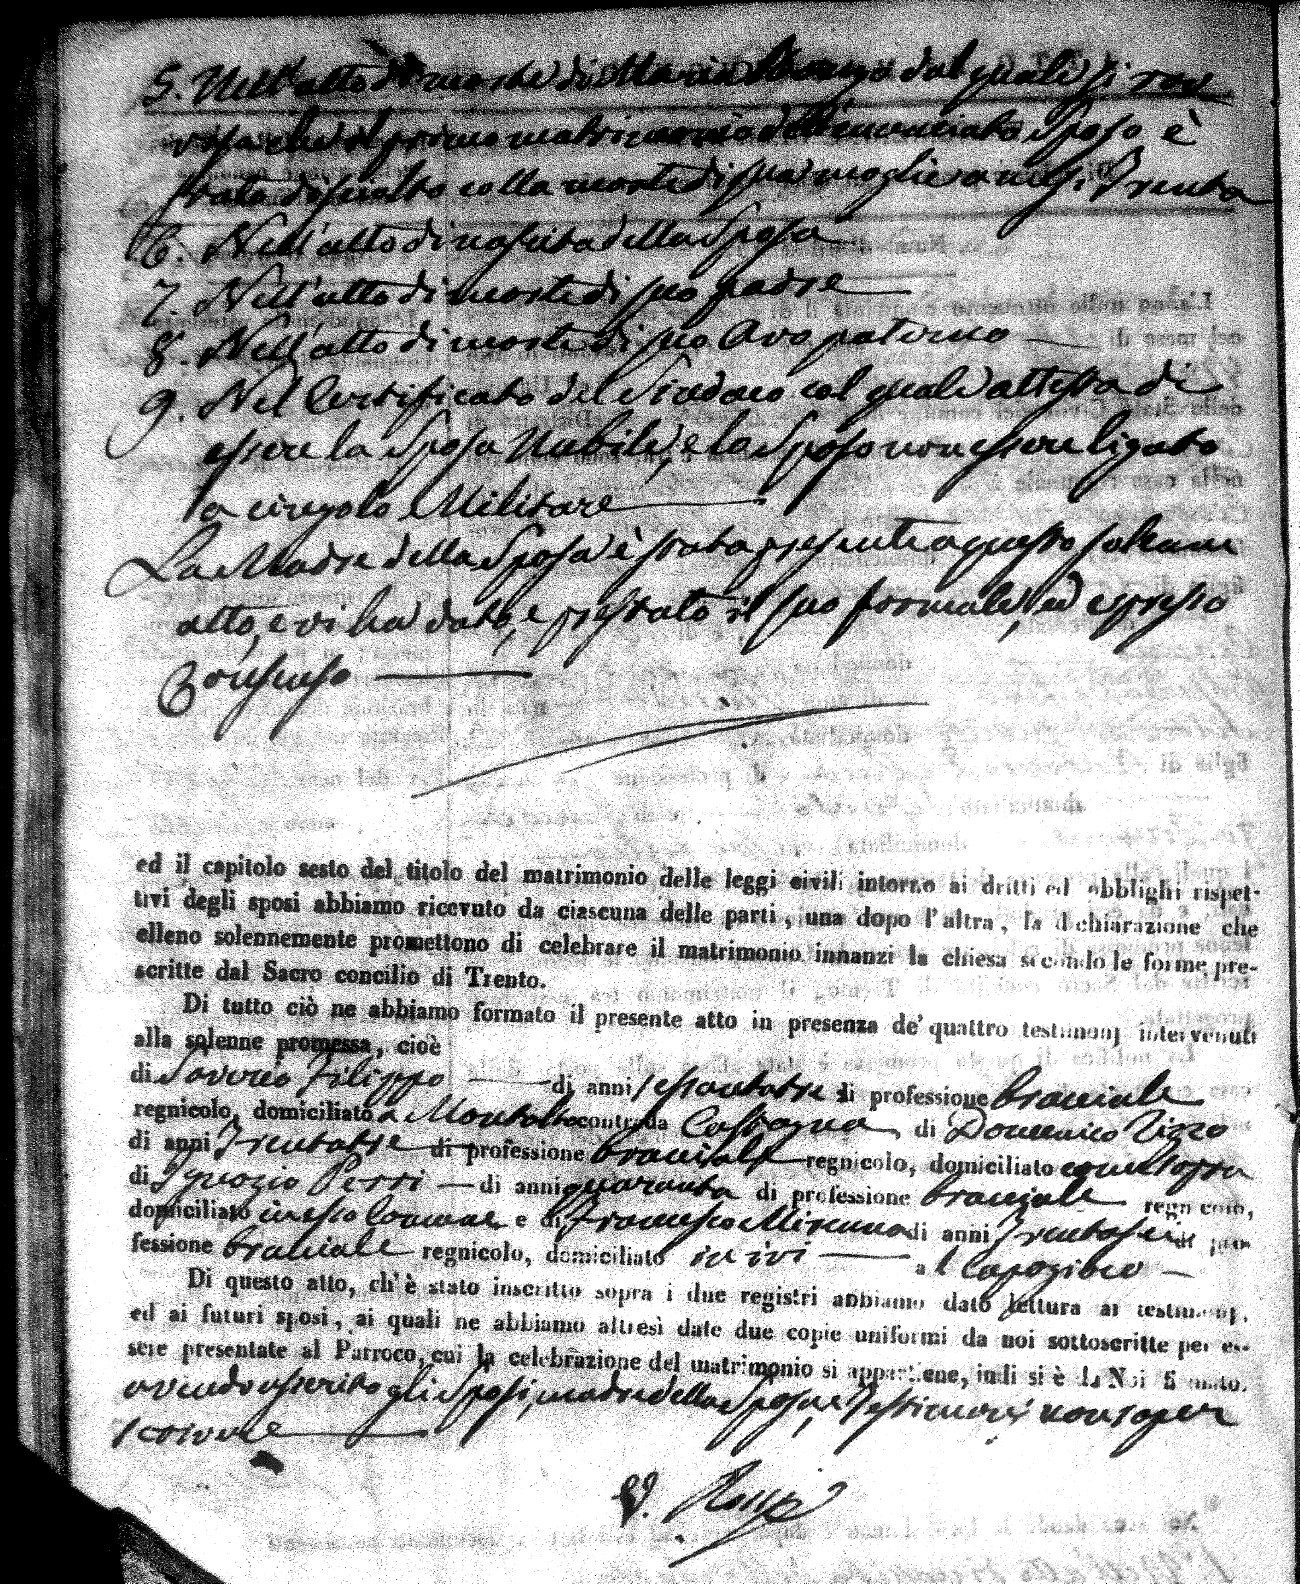 5. Nell'atto di morte di Maria dal quale si rav
visa che il primo matrimonio dell'enunciato Sposo è
stato disciolto colla morte di sua moglie a nusi Trenta
6. Nell'atto di nascita della Sposa
7. Nell'atto di morte di suo padre
8. Nell'atto di morte di suo Avo paterno
9. Nel Certificato del Sindaco col quale attesta di
essere la Sposa Nubile, e lo Sposo non essere ligato
a cingolo Militare
La Madre della Sposa è stata presente a questo solenne
atto, e vi ha dato, e prestato il suo formale, ed espresso
Consenso
ed il capitolo sesto del titolo del matrimonio delle leggi civili intorno ai dritti ed obblighi rispet-
tivi degli sposi abbiamo ricevuto da ciascuna delle parti, una dopo l'altra, la dichiarazione che
elleno solennemente promettono di celebrare il matrimonio innanzi la chiesa secondo le forme pre-
scritte dal Sacro concilio di Trento.
Di tutto ciò ne abbiamo formato il presente atto in presenza de' quattro testimonj intervenuti
alla solenne promessa, cioè
di Saverio Filippo di anni sessantatre di professione bracciale
regnicolo, domiciliato a Montalto contrada Castagna di Domenico Rizzo
di anni Trentatre di professione bracciale regnicolo, domiciliato come sopra
di Ignazio Perri di anni quaranta di professione bracciale regnicolo,
domiciliato in esso Comune e di Francesco di anni Trentasei di pro-
fessione bracciale regnicolo, domiciliato in ivi al Capozibeo
Di questo atto, ch'è stato inscritto sopra i due registri abbiamo dato lettura ai testimonj,
ed ai futuri sposi, ai quali ne abbiamo altresì date due copie uniformi da noi sottoscritte per es-
sere presentate al Parroco, cui la celebrazione del matrimonio si appartiene, indi si è da Noi firmato.
avendo asserito gli Sposi, madre della Sposa, e Testimonj non saper
scrivere